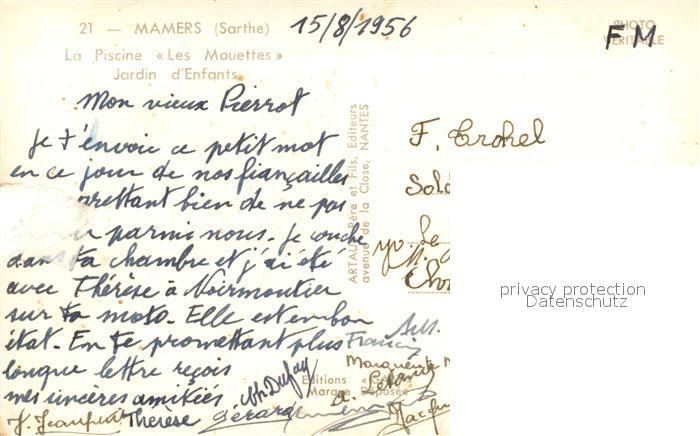 21 — MAMERS (Sarthe)
La Piscine « Les Mouettes »
Jardin d'Enfants
15/8/1956
PHOTO
VÉRITABLE
F M
Mon vieux Pierrot
Je t'envoie ce petit mot
en ce jour de nos fiançailles
prettant bien de ne pas
parmi nous. Je couche
dans ta chambre et j'ai été
avec Thérèse à Noirmoutier
sur ta moto. Elle est en bon
état. En te promettant plus
longue lettre reçois
mes sincères amitiés
Thérèse Gérard
Francis
Marguerite
ARTAUD Père et Fils, Editeurs
avenue de la Close, NANTES
Editions
Marque Déposée
F. Crohel
Sold
Le
privacy protection
Datenschutz